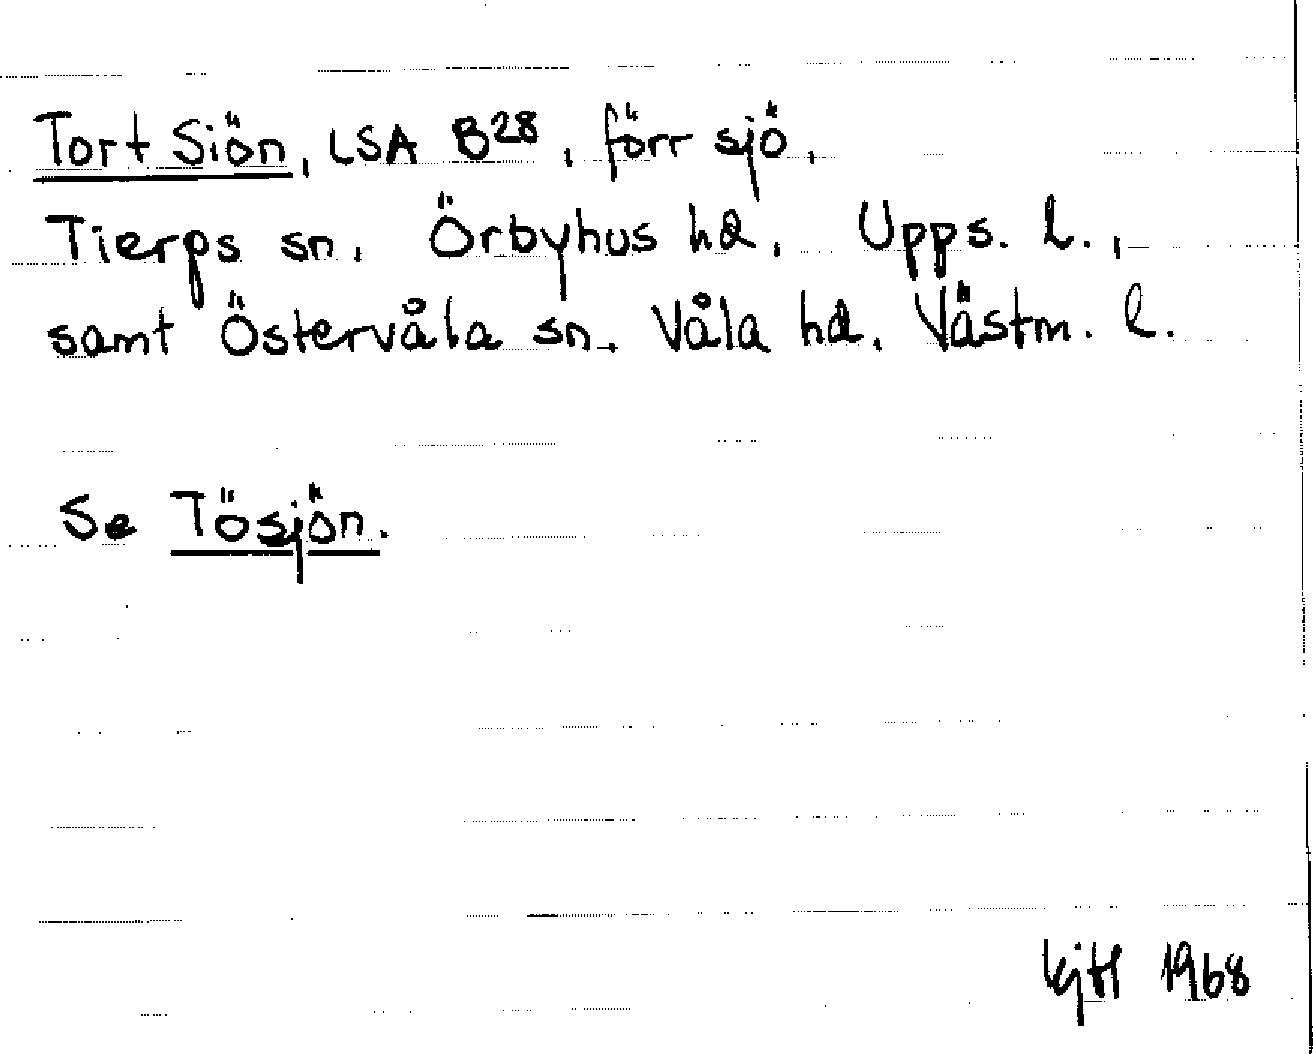 Tort Siön, LSA B28, förr sjö,
Tierps sn, Örbyhus hd, Upps. l.,
samt Östervåla sn. Våla hd, Västm. l.
Se Tösjön.
1968